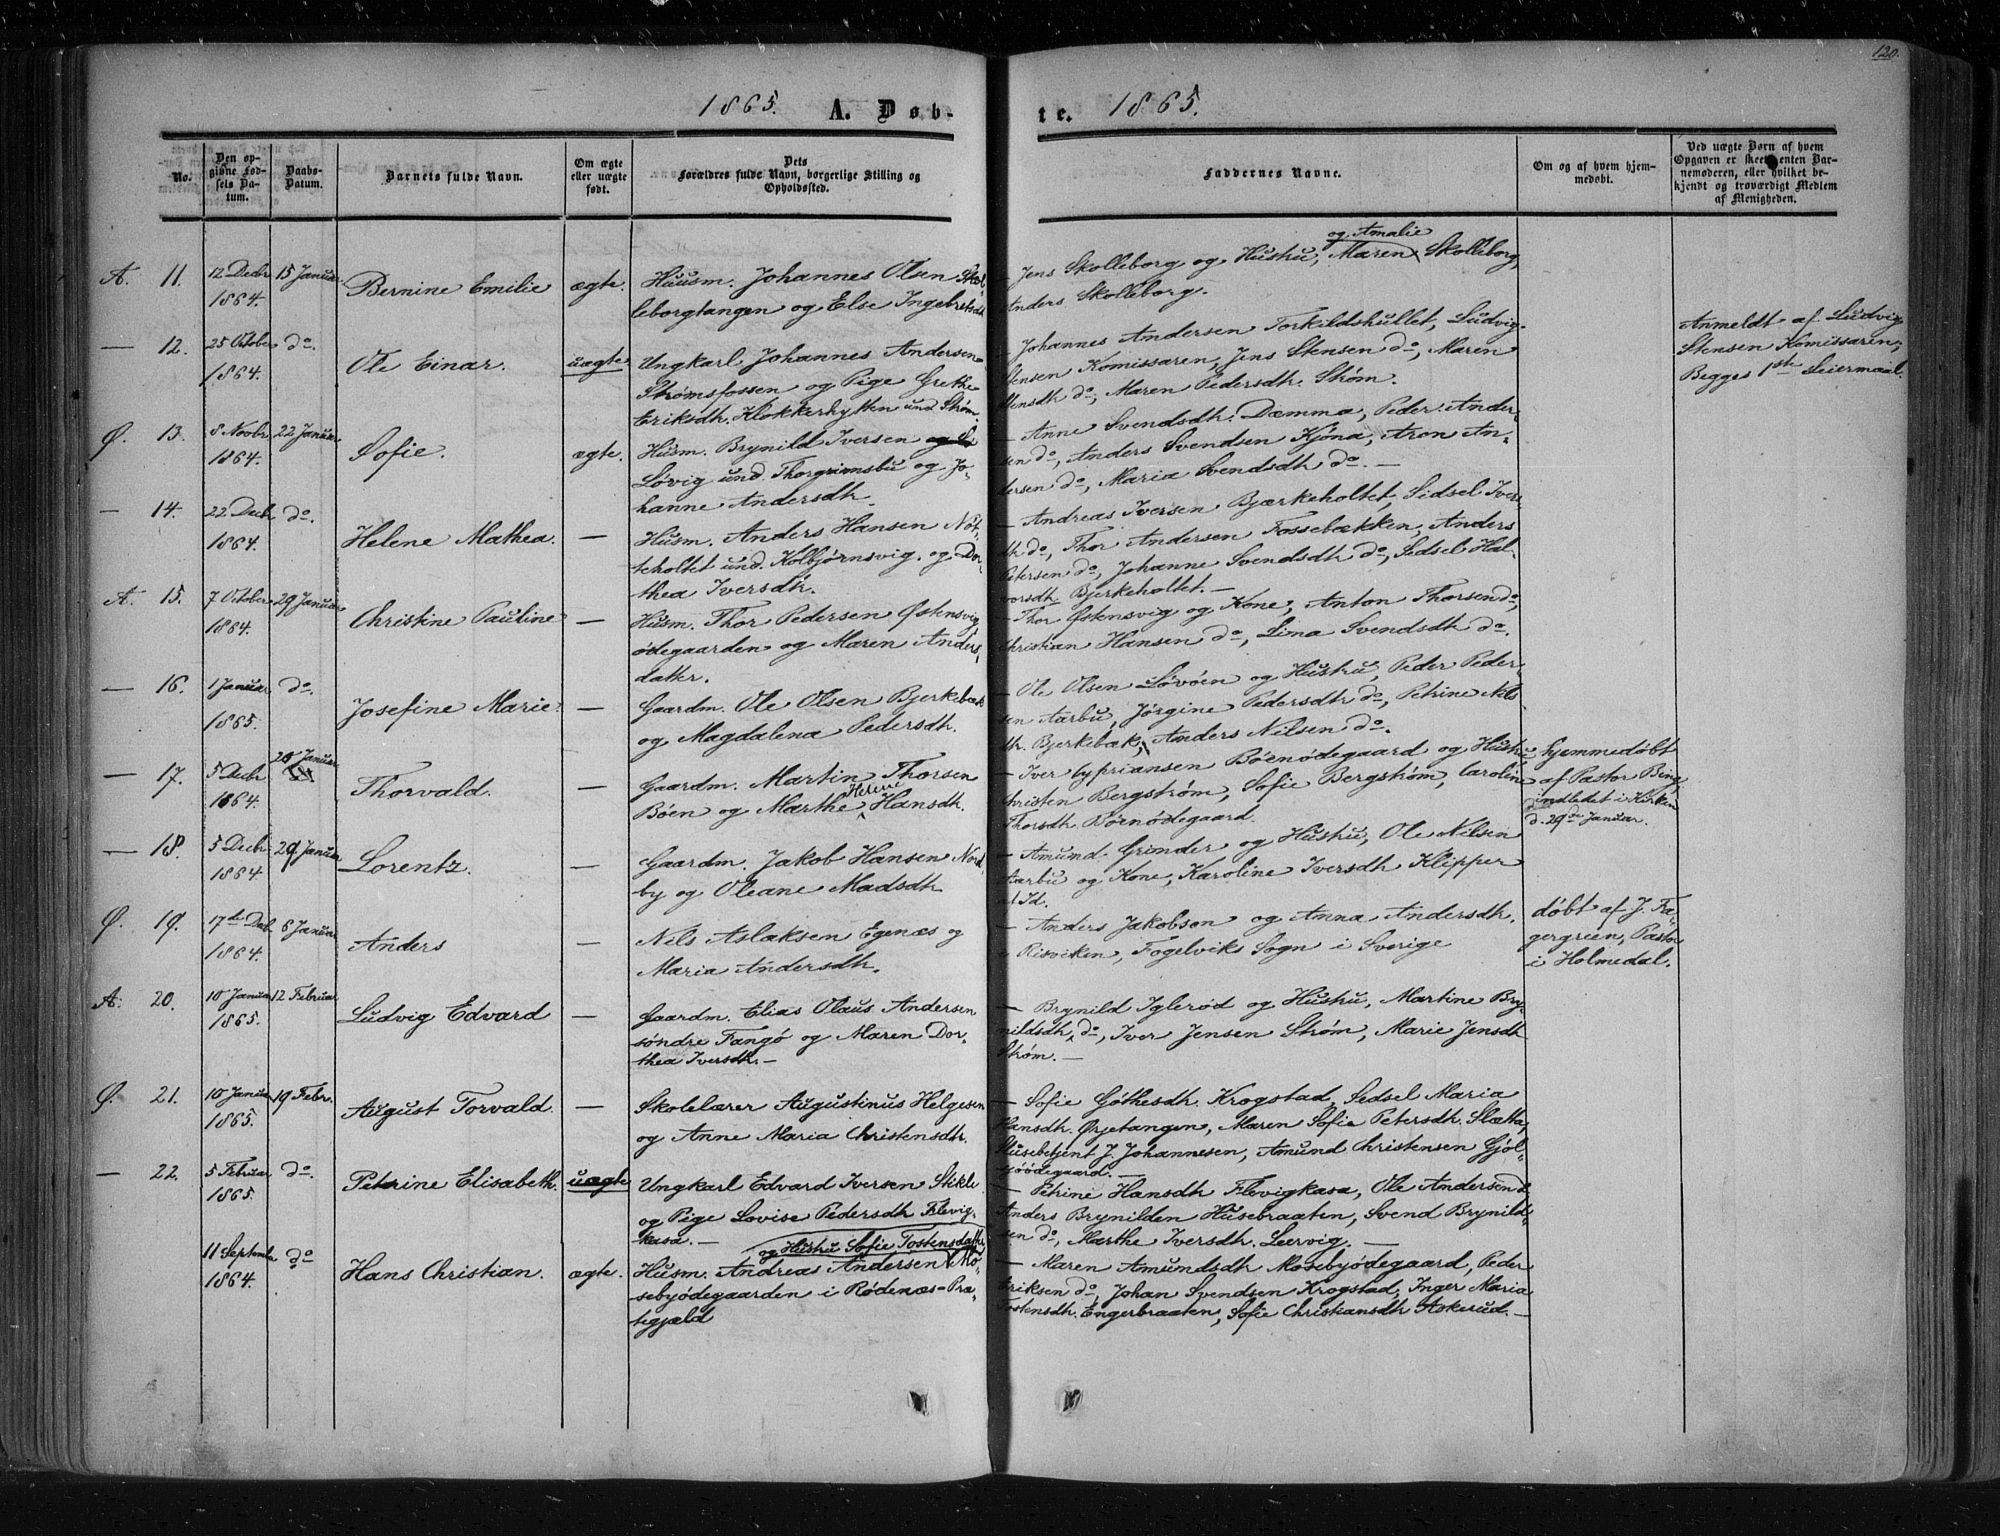 120.
1865. A. Døb-
te. 1865.
No.
Den opgivne Fødsels Datum.
Daabs-Datum.
Barnets fulde Navn.
Om ægte eller uægte født.
Dets Forældres fulde Navn, borgerlige Stilling og Opholdssted.
Faddernes Navne.
Om og af hvem hjemmedøbt.
Ved uægte Børn af hvem Opgaven er skeet, enten Barnemoderen, eller hvilket bekjendt og troværdigt Medlem af Menigheden.
A. 11. 12 Decbr 1864. 15 Januar Bernine Emilie ægte.
Huusm. Johannes Olsen Skol-
leborgtangen og Else Ingebretsdt
og Amalie
- Jens Skolleborg og Hustru, Maren Skolleborg,
Anders Skolleborg.
— 12. 25 October 1864. do. Ole Einar. uægte
Ungkarl Johannes Andersen
Strømsfossen og Pige Grethe
Eriksdtr. Klokkerhytten und. Strøm.
- Johannes Andersen Torkildshullet, Ludvig
Stensen Komissaren, Jens Stensen do, Maren
Stensdtr do, Maren Pedersdtr. Strøm.
Anmeldt af Ludvig
Stensen Komissaren;
Begges 1ste Leiermaal.
Ø. 13. 8 Novbr 1864. 22 Januar Sofie. ægte.
Husm. Brynild Iversen
Løvig und. Thorgrimsbu og Jo-
hanne Andersdtr.
- Anne Svendsdtr. Dæmma, Peder Ander-
sen do, Anders Svendsen Kjøna, Aron An-
dersen do, Maria Svendsdtr do. -
— 14. 22 Decbr 1864. do. Helene Mathea. —
Husm. Anders Hansen Nøt-
teholtet und. Kolbjørnsvig. og Dor-
thea Iversdtr.
- Andreas Iversen Bjærkeholtet, Sidsel Ivers-
dtr do, Thor Andersen Fossebækken, Anders
Petersen do, Johanne Svendsdtr do, Sedsel Hal-
vorsdtr Bjerkeholtet. -
A. 15. 7 October 1864. 29 Januar Christine Pauline —
Husm. Thor Pedersen Østensvig
ødegaarden og Maren Anders-
datter.
- Thor Østensvig og Kone, Anton Thorsen do,
Christian Hansen do, Lima Svendsdtr do.
— 16. 1 Januar 1865. do. Josefine Marie. —
Gaardm. Ole Olsen Bjerkebæk
og Magdalena Pedersdtr.
- Ole Olsen Løvøen og Hustru, Peder Peder-
sen Aarbu, Jørgine Pedersdtr do, Petrine Nils-
dtr. Bjerkebæk, Anders Nilsen do.
— 17. 5 Decbr 1864. 25 Januar Thorvald. —
Gaardm. Martin Thorsen
Bøen og Marthe Helene Hansdtr.
- Iver Cypriansen Bøenødegaard og Hustru
Christen Bergstrøm, Sofie Bergstrøm, Caroline
Thorsdtr. Bøenødegaard.
hjemmedøbt
af Pastor Bing,
indledet i Kirken
d. 29de Januar.
— 18. 5 Decbr 1864. 29 Januar Lorentz. —
Gaardm. Jakob Hansen Nord-
by og Oleane Madsdtr.
- Amund Grinder og Hustru, Ole Nilsen
Aarbu og Kone, Karoline Iversdtr Klipper
at Id.
Ø. 19. 17de Decb. 1864. 6 Januar Anders —
Nils Aslaksen Egenæs og
Maria Andersdtr.
- Anders Jakobson og Anna Andersdtr.
i Risviken, Fogelviks Sogn i Sverige
døbt af J. Fa-
gergrien, Pastor
i Holmedal.
A. 20. 10 Januar 1865. 12 Februar Ludvig Edvard —
Gaardm. Elias Olaus Andersen
søndre Fangø og Maren Dor-
thea Iversdtr. -
- Brynild Iglerød og Hustru, Martine Bry-
nildsdtr, do, Iver Jensen Strøm, Marie Jensdtr
Strøm. -
Ø. 21. 10 Januar 1865. 19 Febr. August Torvald. —
Skolelærer Augustinus Helgesen
og Anne Maria Christensdtr.
- Sofie Gøthesdtr. Krogstad, Sedsel Maria
Hansdtr. Ørjetangen, Maren Sofie Petersdtr. Slætta,
Slusebetjent J. Johannesen, Amund Christensen Gjøl-
sjøødegaard. -
— 22. 5 Februar 1865. do. Petrine Elisabeth. uægte
Ungkarl Edvard Iversen Stikle
og Pige Lovise Pedersdtr Flevig-
kasa. -
- Petrine Hansdtr Flevigkasa, Ole Andersen do,
Anders Brynilden Husebraaten, Svend Brynild-
sen do, Marthe Iversdtr. Leervig. -
11 September 1864. do Hans Christian. ægte.
og Hustru Sofie Tostensdatter
Husm. Andreas Andersen Mo-
sebyødegaarden i Rødenæs-Præ-
stegjæld
- Maren Amundsdtr Mosebyødegaard, Peder
Eriksen do, Johan Svendsen Krogstad, Inger Maria
Tostensdtr. Engerbraaten, Sofie Christiansdtr Askerud. -